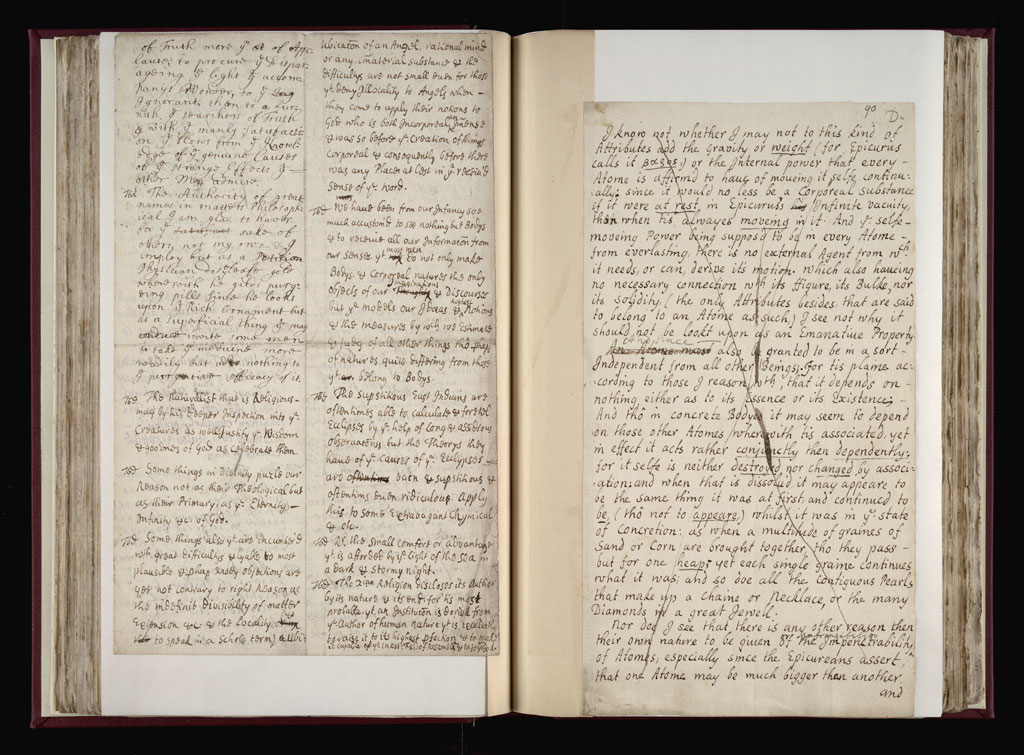 of Truth more yn at of Appl-
lauses to procure ye Dispar-
ageing
panys Wonder, to ye
Ignorant; then to a
suit, ye searchers of Truth
& with ye manly satisfacti-
on yt flows from ye Knowl-
edge of ye genuine Causes
of ye strange Effects ye
other Men admire.
The Authority of great
names in matters Philosoph-
ical I am glad to haves
for ye sake of
others, not my own; & I
imploy but as a
Physitian dos gold
where with he gilds purg-
eing pills since he looks
upon a Rich Ornament but
as a superficial thing yt may
invite some men
to take ye medicine more
readily but adds nothing to
ye efficacy of it.
The Naturallist that is Religious
may by his deeper Inspection into ye
Creatures as well Justify ye Wisdom
& goodness of god as Celebrate them.
Some things in Divinity puzle our
Reason not as their Theological but
as their Primary (as ye Eternity)
Infinity &c. of God.
Some things also yt are Encumber'd
wth great difficultys & lyable to most
plausible & phap knotty objections are
yet not contrary to right Reason as
the indefinit divisibility of matter
Extension &c & the Locality
to speak in a Schole term) & Ubi-
Ubication of an Angel, rational mind
or any imaterial substance & the
difficultys are not small even for those
yt deny Allocality to Angels when
they come to apply their notions to
God who is both Incorporeal & imense
& was so before ye Creation of things
Corporeal & consequently before there
was any Place at lest in ye receiv'd
sense of ye word.
We have been from our Infancy soe
much accustomd to see nothing but Bodys
& to receive all our Information from
our senses, yt most men do not only make
Bodys & Corporeal natures the only
objects of our imaginations & Discourses
but ye models our Ideas & Notions
& the measures by wch we Estimate
& judg of all other things tho phap
of natures quite differing from those
yt belong to Bodys.
The Supstitious East Indians are
oftentimes able to calculate & foretel
Ecclipses by ye help of Long & assiduous
observations, but the Theorys they
have of ye Causes of ye Ecclypses
are both & supstitious &
oftentims even ridiculous. apply
this to some Extravagant Chymical
& etc.
the small comfort or advantage
yt is afforded by ye Light of the sea in
a dark & stormy night.
The Xian Religion discloses its Author
by its nature & its end; for his most
probable yt an Institution is deriv'd from
ye Author of human nature yt is
to raise it to its highest pfection &
90 D.
I know not whether I may not to this kind of
Attributes add the Gravity or weight (for Epicurus
calls it βαρος) or the Internal power that every-
Atome is affirm'd to have of moveing it selfe continu-
ally; since it would no less be a Corporeal Substance
if it were at rest, in Epicurus's Infinite vacuity,
then when tis alwayes moveing in it. And ye selfe-
moveing Power being suppos'd to be in every Atome-
from everlasting, there is no external Agent from wch
it needs, or can, derive its motion. which also haveing
no necessary connection wth its ffigure, its Bulke, nor
its solidity, (the only Attributes besides that are said
to belong to an Atome as such,) I see not why it
should not be lookt upon as an Emanative Property.
An Atome must also be granted to be in a sort-
Independent from all other Beings. For tis plaine, ac-
cording to those I reason wth, that it depends on-
nothing, either as to its Essence or its Existence,
And tho in concrete Bodyes it may seem to depend
on those other Atomes wherewith tis associated, yet
in effect it acts rather conjunctly then dependently;
for it selfe is neither destroyed nor changed by associ-
ation; and when that is dissolvd it may appeare to
be the same thing it was at first, and continued to
be (tho not to appeare,) whilst it was in ye state
of Concretion: as when a multitude of graines of
Sand or Corn are brought together, tho they pass-
but for one heap; yet each single graine continues
what it was; and so doe all the Contiguous Pearls
that make up a Chaine or Necklace, or the many
Diamonds in a great Jewell.
Nor doe I see that there is any other reason then
their own nature to be given of the Impenetrability
of Atomes; especially since the Epicureans assert,
that one Atome may be much bigger then another.
and